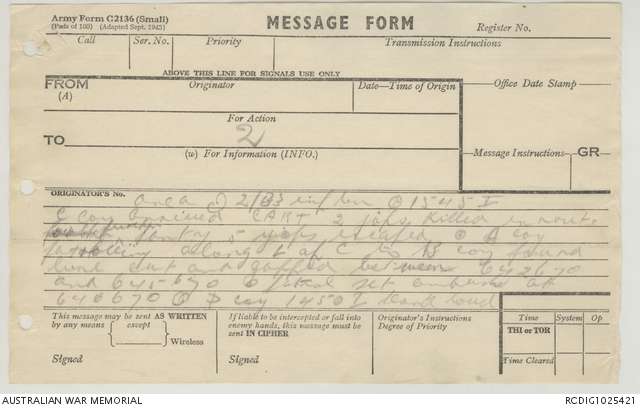 Army Form C2136 (Small)
(Pads of 100) (Adapted Sept. 1943)
MESSAGE FORM
Register No.
Call Ser. No. Priority Transmission Instructions
ABOVE THIS LINE FOR SIGNALS USE ONLY
FROM
(A)
Originator
Date—Time of Origin
Office Date Stamp
For Action
TO
2
(w) For Information (INFO.)
Message Instructions GR
ORIGINATOR'S No.
area 2/33 inf bn 1545 I
C coy arrived CART 2 japs killed in
5 japs escaped coy
patrolling along from C to B coy found
line cut and between 642670
and 645670 patrol set ambush at
646670 coy 1450 I heard loud
This message may be sent AS WRITTEN
by any means except
Wireless
Signed
If liable to be intercepted or fall into
enemy hands, this message must be
sent IN CIPHER
Signed
Originator's Instructions
Degree of Priority
Time System Op
THI or TOR
Time Cleared
AUSTRALIAN WAR MEMORIAL RCDIG1025421